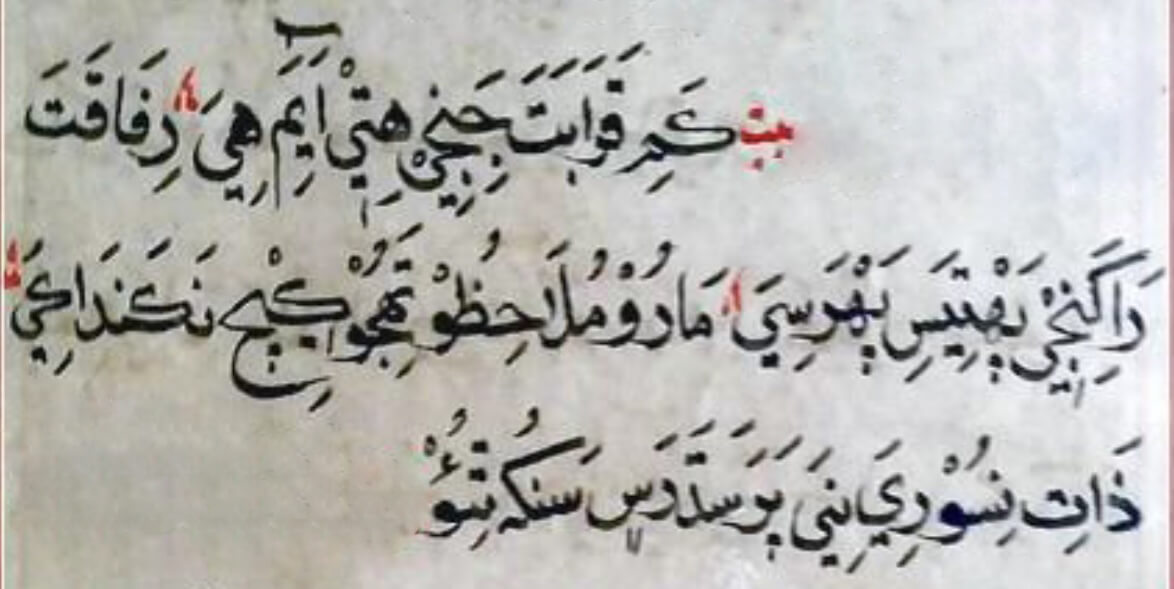 بيت كَمِ قَرَابَتَ جَنِجِيْ هِتِيْ آيَمِ هِيَ رِفَاقَتَ
رَاكَنِجِيْ پَهْتِيَسِ پَهْرَسِيَ مَارُوْ مُلَاحِظُوْ تِهجُوْ كِيْچِ نَكَندَا كِيَ
ذَاتِ نِسُوْرِي نِيَي پَرَ سَنْدَرَسِ سَنكُه